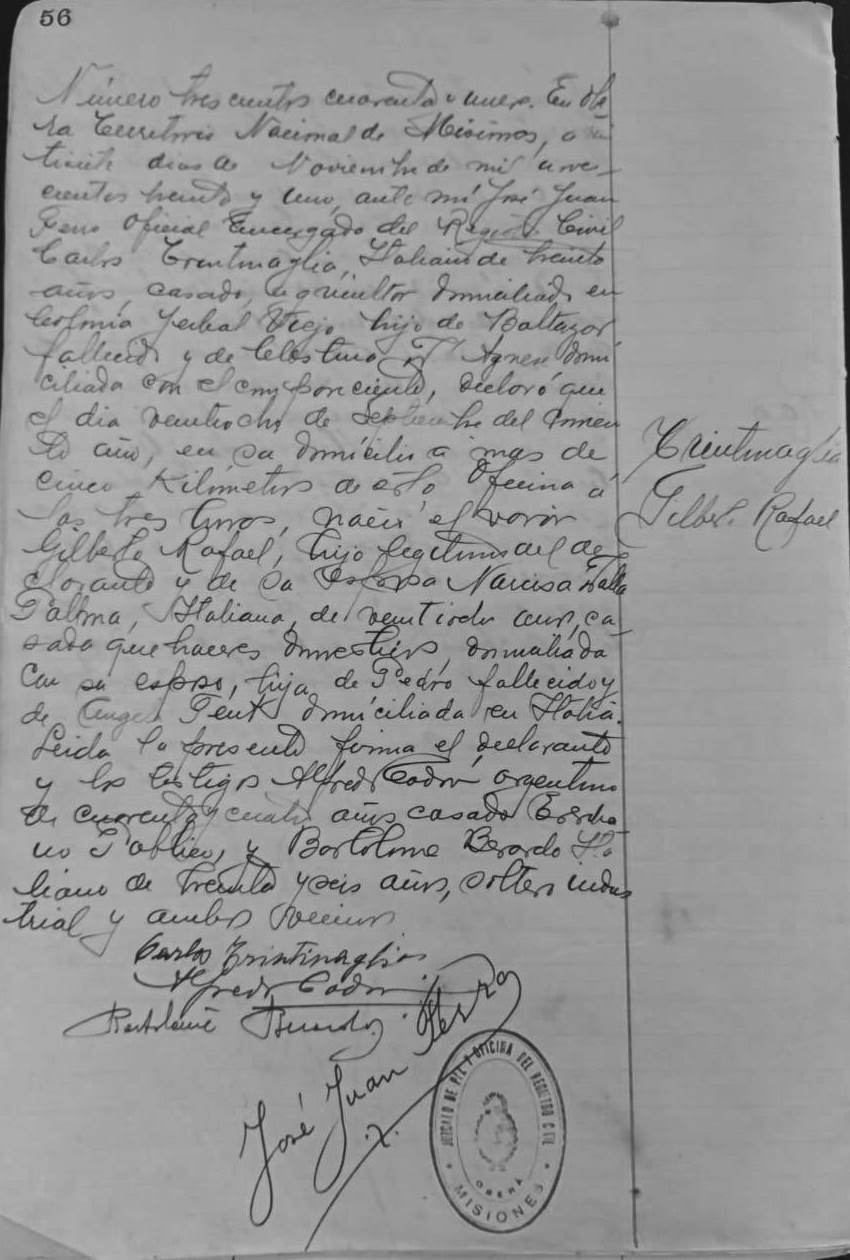 56
Número trescientos cuarenta y nueve. En Obe-
rá Territorio Nacional de Misiones, a vein
tisiete dias de Noviembre de mil nove-
cientos treinta y uno, ante mí José Juan
Oficial Encargado del Registro Civil
Carlos Trintinaglia, Italiano de treinta
años, casado, agricultor domiciliado en
Colonia Yerbal Viejo hijo de Baltazar
fallecido y de Celestina D' Agnese domi
ciliada con el compareciente, declaró que
el dia veintiocho de Septiembre del corrien
te año, en su domicilio a mas de
cinco Kilómetros de esta Oficina á
las tres horas, nació el varón
Gilberto Rafael, hijo legitimo del de
clarante y de su esposa Narcisa Dalla
Palma, Italiana, de veintidos años, ca-
sada quehaceres domesticos, domiciliada
con su esposo, hija de Pedro fallecido y
de domiciliada en Italia.
Leida la presente firma el declarante
y los testigos Alfredo argentino
de cuarenta y cuatro años casado Escriba-
no Público, y Bartolome Berardo Ita
liano de treinta y seis años, soltero indus
trial y ambos vecinos
Carlos Trintinaglia
Alfredo
Bartolomé Berardo
José Juan
Trintinaglia
Gilberto Rafael
JUZGADO DE PAZ Y OFICINA DEL REGISTRO CIVIL
OBERÁ
MISIONES